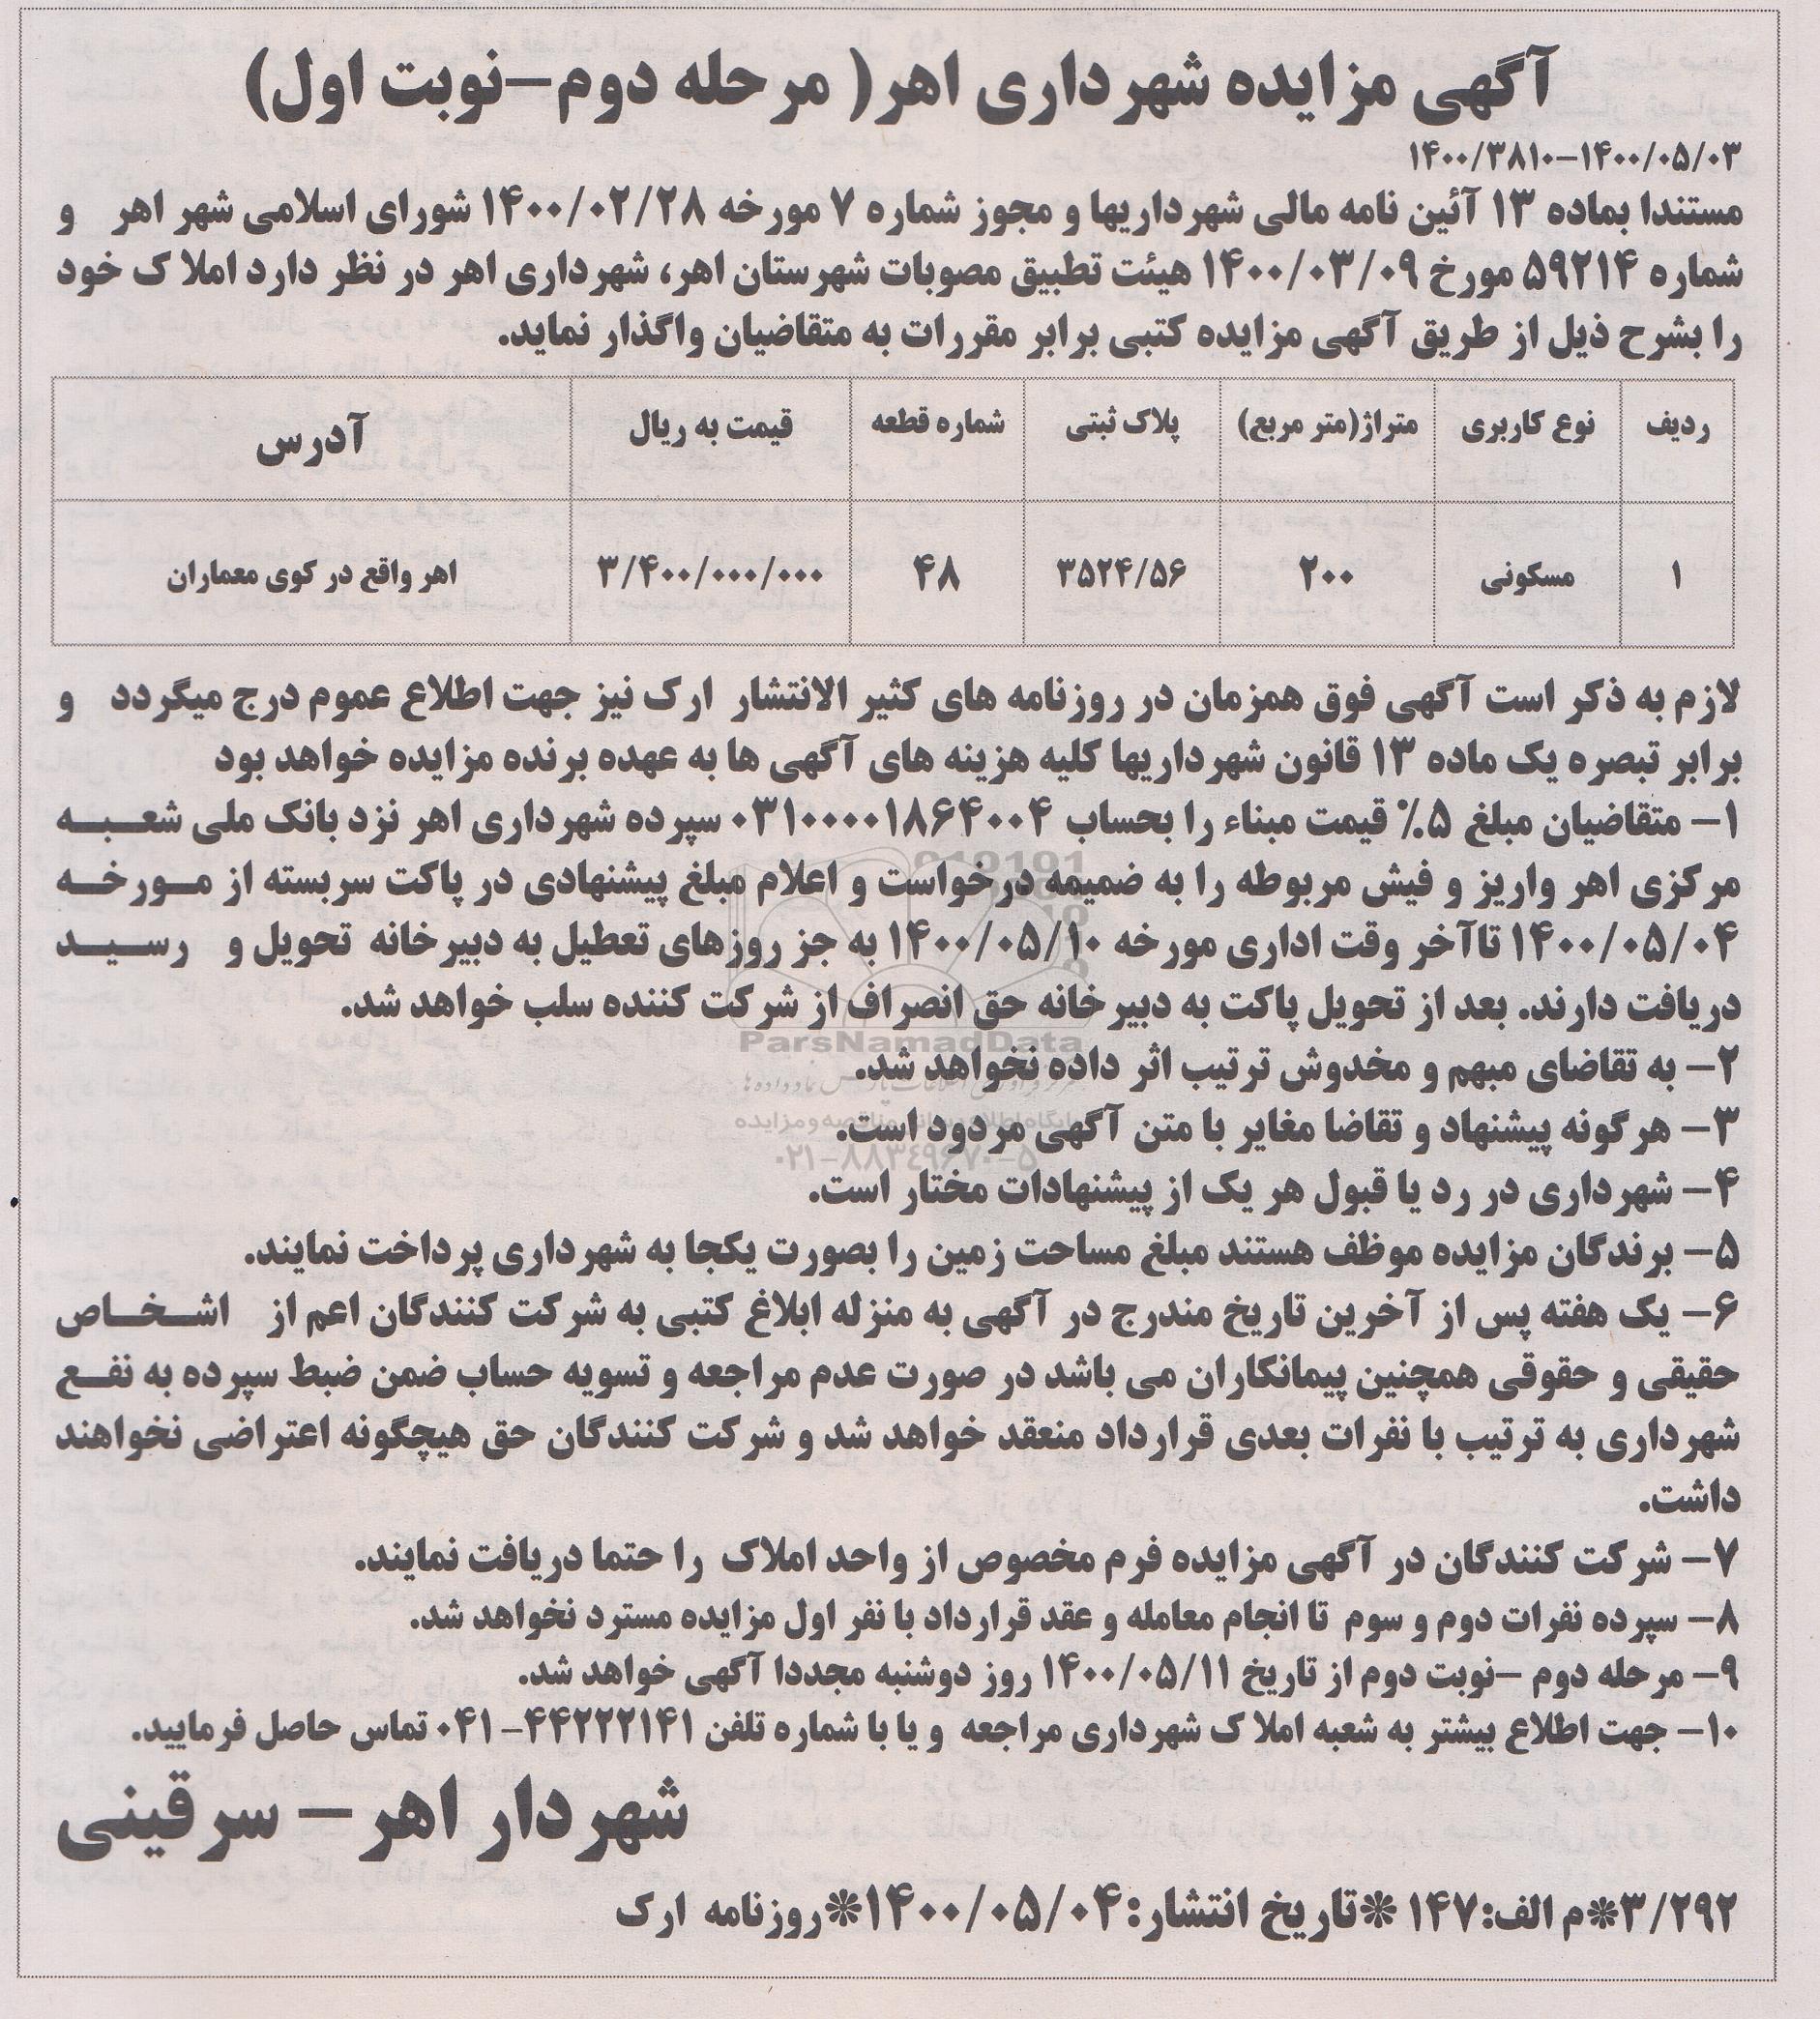 آگهی مزایده شهرداری اهر( مرحله دوم-نوبت اول)
۱۴۰۰/۳۸۱۰-۱۴۰۰/۰۵/۰۳
مستندا بماده ۱۳ آئین نامه مالی شهرداریها و مجوز شماره ۷ مورخه ۱۴۰۰/۰۲/۲۸ شورای اسلامی شهر اهر و
شماره ۵۹۲۱۴ مورخ ۱۴۰۰/۰۳/۰۹ هیئت تطبیق مصوبات شهرستان اهر، شهرداری اهر در نظر دارد املاک خود
را بشرح ذیل از طریق آگهی مزایده کتبی برابر مقررات به متقاضیان واگذار نماید.
ردیف نوع کاربری متراژ(متر مربع) پلاک ثبتی شماره قطعه قیمت به ریال آدرس
۱ مسکونی ۲۰۰ ۳۵۲۴/۵۶ ۴۸ ۳/۴۰۰/۰۰۰/۰۰۰ اهر واقع در کوی معماران
لازم به ذکر است آگهی فوق همزمان در روزنامه های کثیر الانتشار ارک نیز جهت اطلاع عموم درج میگردد و
برابر تبصره یک ماده ۱۳ قانون شهرداریها کلیه هزینه های آگهی ها به عهده برنده مزایده خواهد بود
۱- متقاضیان مبلغ ۵٪ قیمت مبناء را بحساب ۰۳۱۰۰۰۰۱۸۶۴۰۰۴ سپرده شهرداری اهر نزد بانک ملی شعبه
مرکزی اهر واریز و فیش مربوطه را به ضمیمه درخواست و اعلام مبلغ پیشنهادی در پاکت سربسته از مورخه
۱۴۰۰/۰۵/۰۴ تاآخر وقت اداری مورخه ۱۴۰۰/۰۵/۱۰ به جز روزهای تعطیل به دبیرخانه تحویل و رسید
دریافت دارند. بعد از تحویل پاکت به دبیرخانه حق انصراف از شرکت کننده سلب خواهد شد.
ParsNamadData
۲- به تقاضای مبهم و مخدوش ترتیب اثر داده نخواهد شد.
۳- هرگونه پیشنهاد و تقاضا مغایر با متن آگهی مردود است.
۰۲۱-۸۸۳۴۹۶۷۰-۵
۴- شهرداری در رد یا قبول هر یک از پیشنهادات مختار است.
۵- برندگان مزایده موظف هستند مبلغ مساحت زمین را بصورت یکجا به شهرداری پرداخت نمایند.
۶- یک هفته پس از آخرین تاریخ مندرج در آگهی به منزله ابلاغ کتبی به شرکت کنندگان اعم از اشخاص
حقیقی و حقوقی همچنین پیمانکاران می باشد در صورت عدم مراجعه و تسویه حساب ضمن ضبط سپرده به نفع
شهرداری به ترتیب با نفرات بعدی قرارداد منعقد خواهد شد و شرکت کنندگان حق هیچگونه اعتراضی نخواهند
داشت.
۷- شرکت کنندگان در آگهی مزایده فرم مخصوص از واحد املاک را حتما دریافت نمایند.
۸- سپرده نفرات دوم و سوم تا انجام معامله و عقد قرارداد با نفر اول مزایده مسترد نخواهد شد.
۹- مرحله دوم -نوبت دوم از تاریخ ۱۴۰۰/۰۵/۱۱ روز دوشنبه مجددا آگهی خواهد شد.
۱۰- جهت اطلاع بیشتر به شعبه املاک شهرداری مراجعه و یا با شماره تلفن ۴۴۲۲۲۱۴۱-۰۴۱ تماس حاصل فرمایید.
شهردار اهر - سرقینی
۳/۲۹۲*م الف:۱۴۷ *تاریخ انتشار:۱۴۰۰/۰۵/۰۴*روزنامه ارک